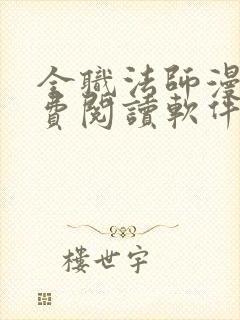 全職法師漫
費閱讀軟件
樓世宇